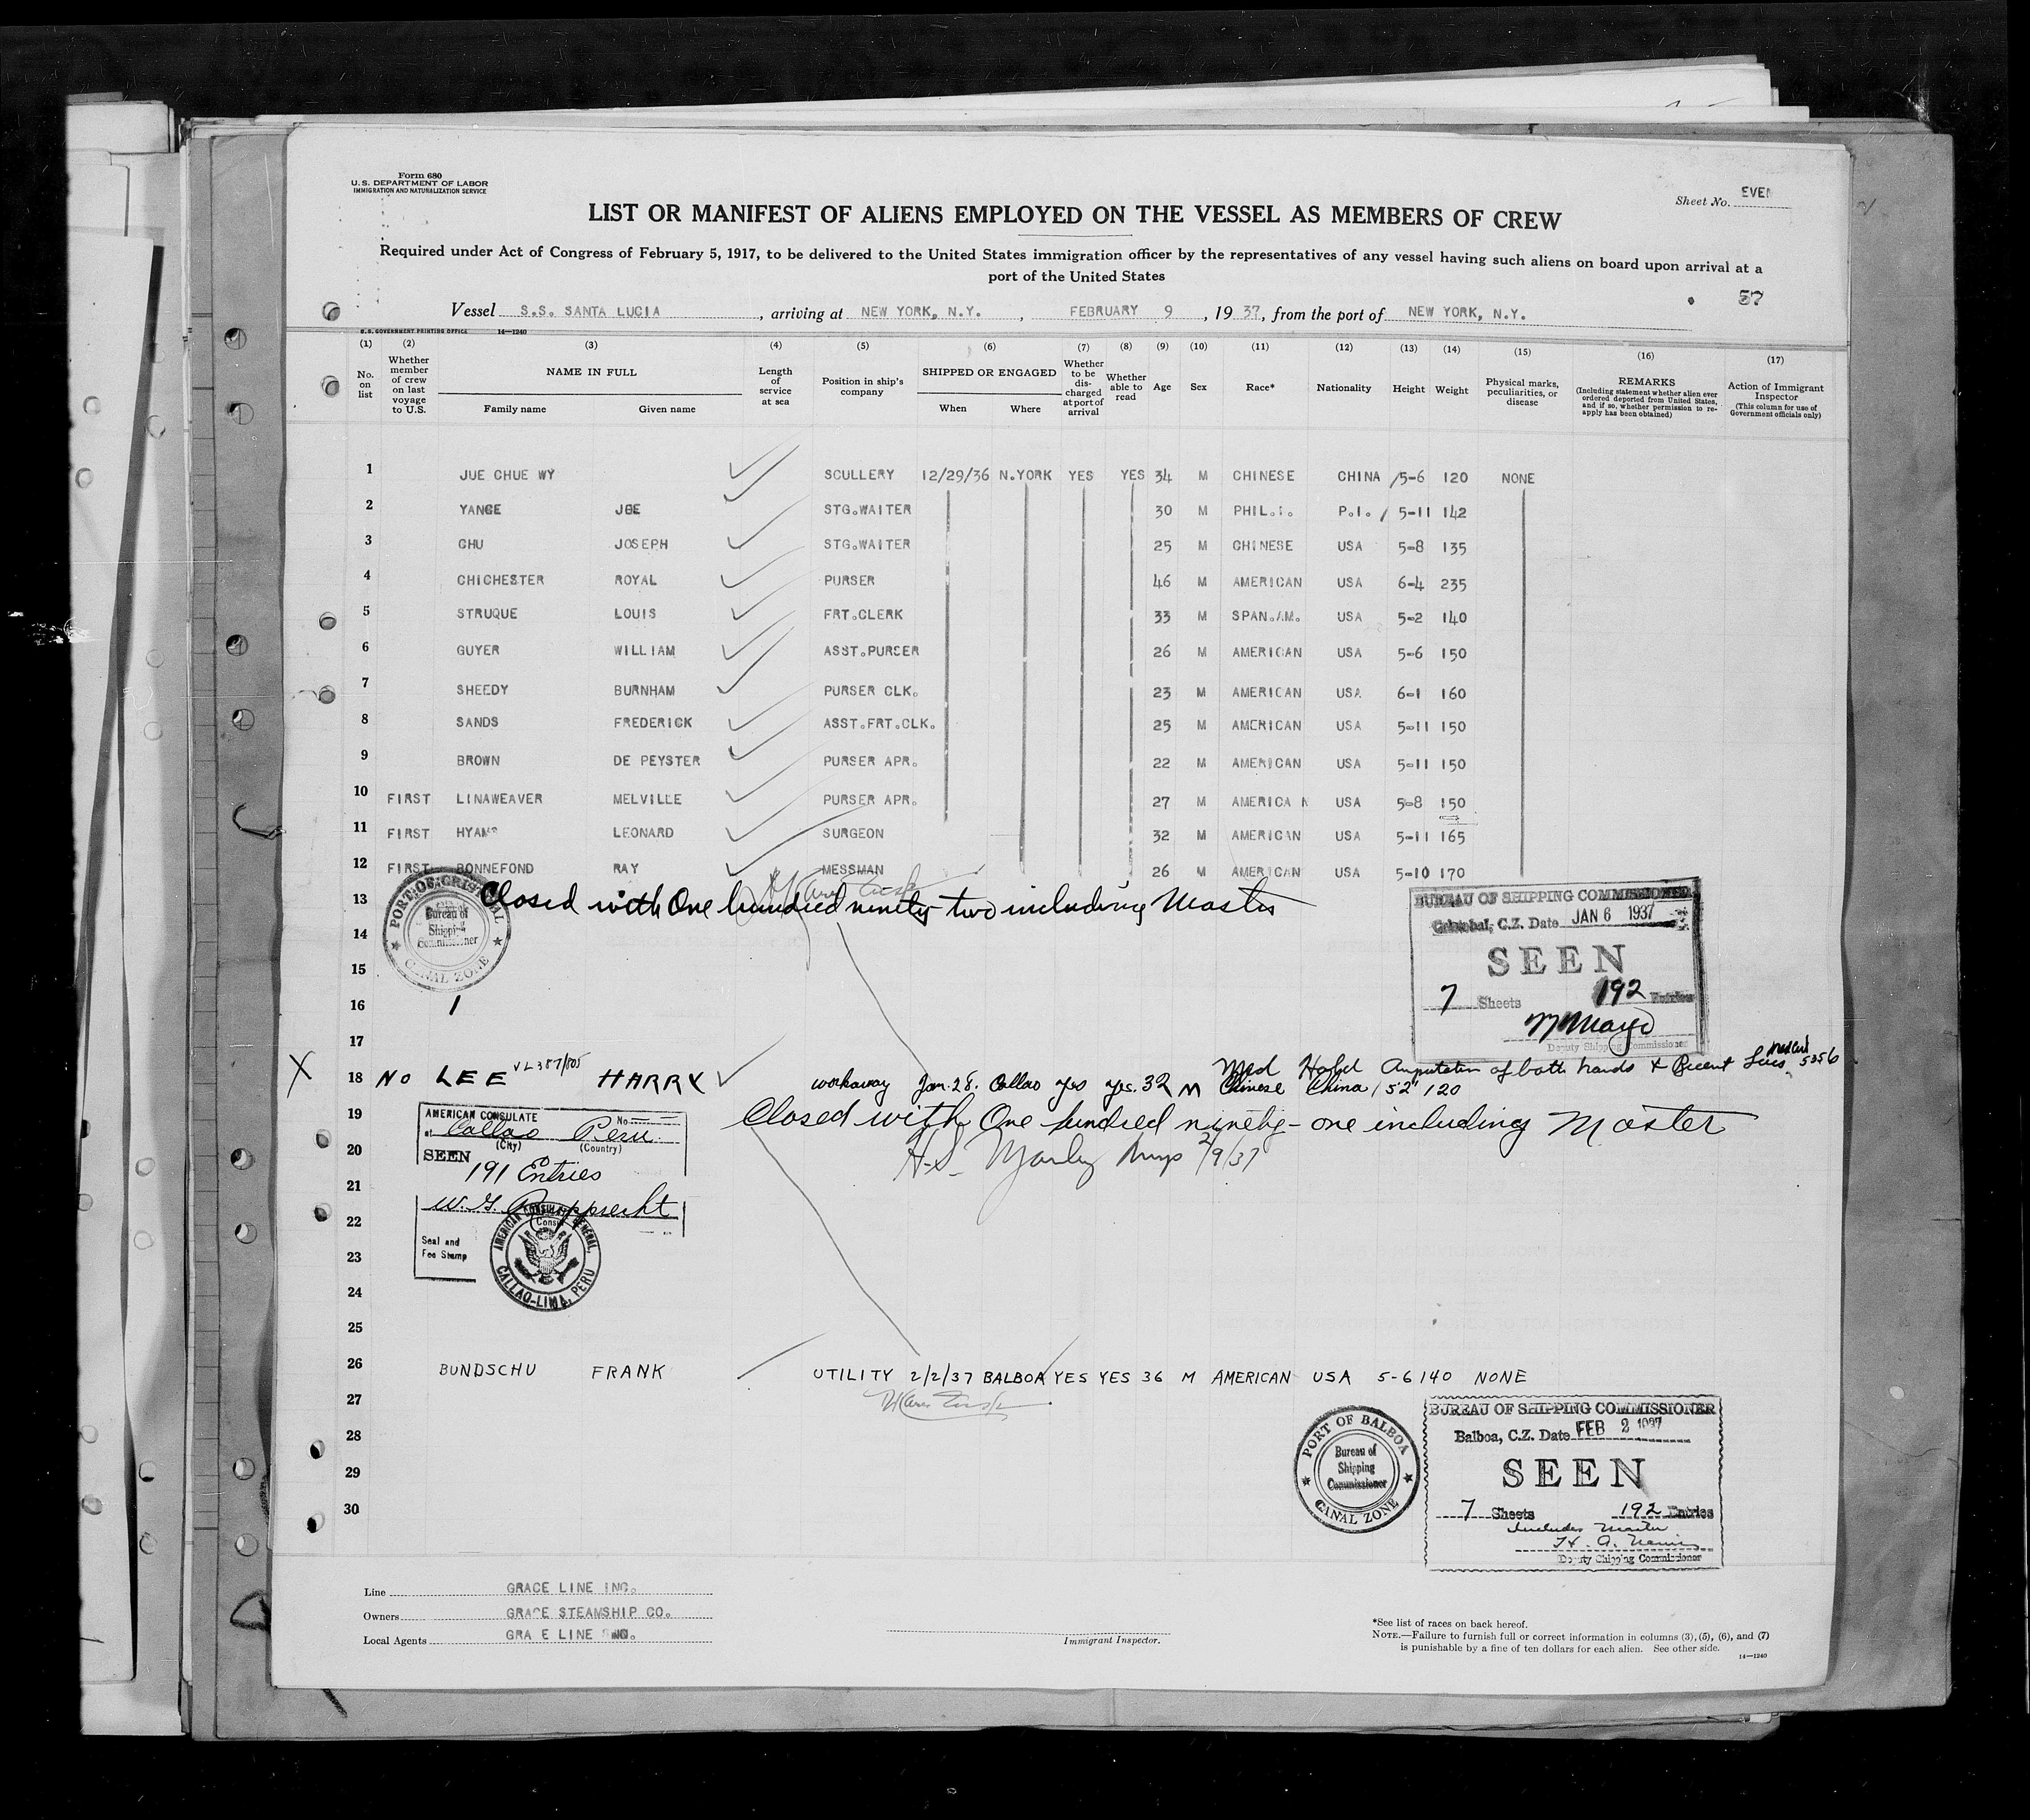 Form 680
U.S. DEPARTMENT OF LABOR
IMMIGRATION AND NATURALIZATION SERVICE
Sheet No. EVEN
LIST OR MANIFEST OF ALIENS EMPLOYED ON THE VESSEL AS MEMBERS OF CREW
Required under Act of Congress of February 5, 1917, to be delivered to the United States immigration officer by the representatives of any vessel having such aliens on board upon arrival at a
port of the United States
57
Vessel S.S. SANTA LUCIA, arriving at NEW YORK, N.Y., FEBRUARY 9, 1937, from the port of NEW YORK, N.Y.
U.S. GOVERNMENT PRINTING OFFICE 14—1240
(1) No. on list
(2) Whether member of crew on last voyage to U.S.
(3) NAME IN FULL Family name Given name
(4) Length of service at sea
(5) Position in ship's company
(6) SHIPPED OR ENGAGED When Where
(7) Whether to be discharged at port of arrival
(8) Whether able to read
(9) Age
(10) Sex
(11) Race*
(12) Nationality
(13) Height
(14) Weight
(15) Physical marks, peculiarities, or disease
(16) REMARKS (Including statement whether alien ever ordered deported from United States, and if so, whether permission to re-apply has been obtained)
(17) Action of Immigrant Inspector (This column for use of Government officials only)
1 JUE CHUE WY SCULLERY 12/29/36 N.YORK YES YES 34 M CHINESE CHINA 5-6 120 NONE
2 YANGE JOE STG.WAITER 30 M PHIL.I. P.I. 5-11 142
3 CHU JOSEPH STG.WAITER 25 M CHINESE USA 5-8 135
4 CHICHESTER ROYAL PURSER 46 M AMERICAN USA 6-4 235
5 STRUQUE LOUIS FRT.CLERK 33 M SPAN.AM. USA 5-2 140
6 GUYER WILLIAM ASST.PURSER 26 M AMERICAN USA 5-6 150
7 SHEEDY BURNHAM PURSER CLK. 23 M AMERICAN USA 6-1 160
8 SANDS FREDERICK ASST.FRT.CLK. 25 M AMERICAN USA 5-11 150
9 BROWN DE PEYSTER PURSER APR. 22 M AMERICAN USA 5-11 150
10 FIRST LINAWEAVER MELVILLE PURSER APR. 27 M AMERICA N USA 5-8 150
11 FIRST HYAMS LEONARD SURGEON 32 M AMERICAN USA 5-11 165
12 FIRST BONNEFOND RAY MESSMAN 26 M AMERICAN USA 5-10 170
13 Closed with One hundred ninety two including Master
PORT OF CRISTOBAL CANAL ZONE
Bureau of Shipping Commissioner
BUREAU OF SHIPPING COMMISSIONER
Cristobal, C.Z. Date JAN 6 1937
SEEN
7 Sheets 192 Entries
Deputy Shipping Commissioner
14
15
16 1
17
Med Hold Amputation of both hands & Recent
X 18 No LEE HARRY workaway Jan. 28. Callao yes yes. 32 M Chinese China 5'2" 120
19 Closed with One hundred ninety-one including Master
20 2/9/37
AMERICAN CONSULATE No.
at Callao Peru.
(City) (Country)
SEEN
191 Entries
Consul
Seal and Fee Stamp
AMERICAN CONSULATE GENERAL, CALLAO-LIMA, PERU
21
22
23
24
25
26 BUNDSCHU FRANK UTILITY 2/2/37 BALBOA YES YES 36 M AMERICAN USA 5-6 140 NONE
27
28
29
30
PORT OF BALBOA CANAL ZONE
Bureau of Shipping Commissioner
BUREAU OF SHIPPING COMMISSIONER
Balboa, C.Z. Date FEB 2 1937
SEEN
7 Sheets 192 Entries
includes Master
Deputy Shipping Commissioner
Line GRACE LINE INC.
Owners GRACE STEAMSHIP CO.
Local Agents GRA E LINE INC.
Immigrant Inspector.
*See list of races on back hereof.
NOTE.—Failure to furnish full or correct information in columns (3), (5), (6), and (7)
is punishable by a fine of ten dollars for each alien. See other side.
14—1240